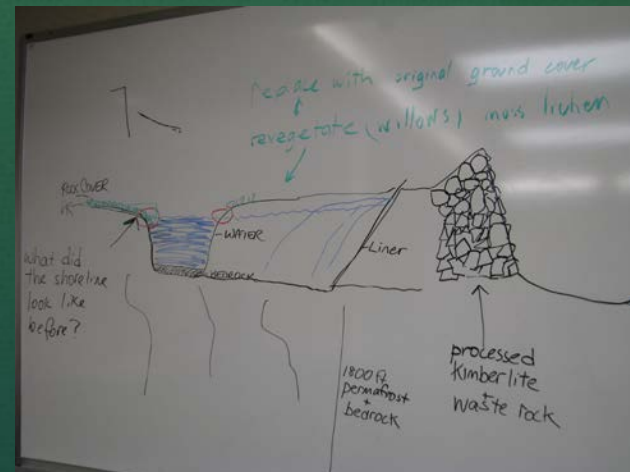 replace with original ground cover
revegetate (willows) moss lichen
ROCK COVER
PK
WATER
BEDROCK
Liner
what did
the shoreline
look like
before?
1800 ft
permafrost
+
bedrock
processed
Kimberlite
+
waste rock